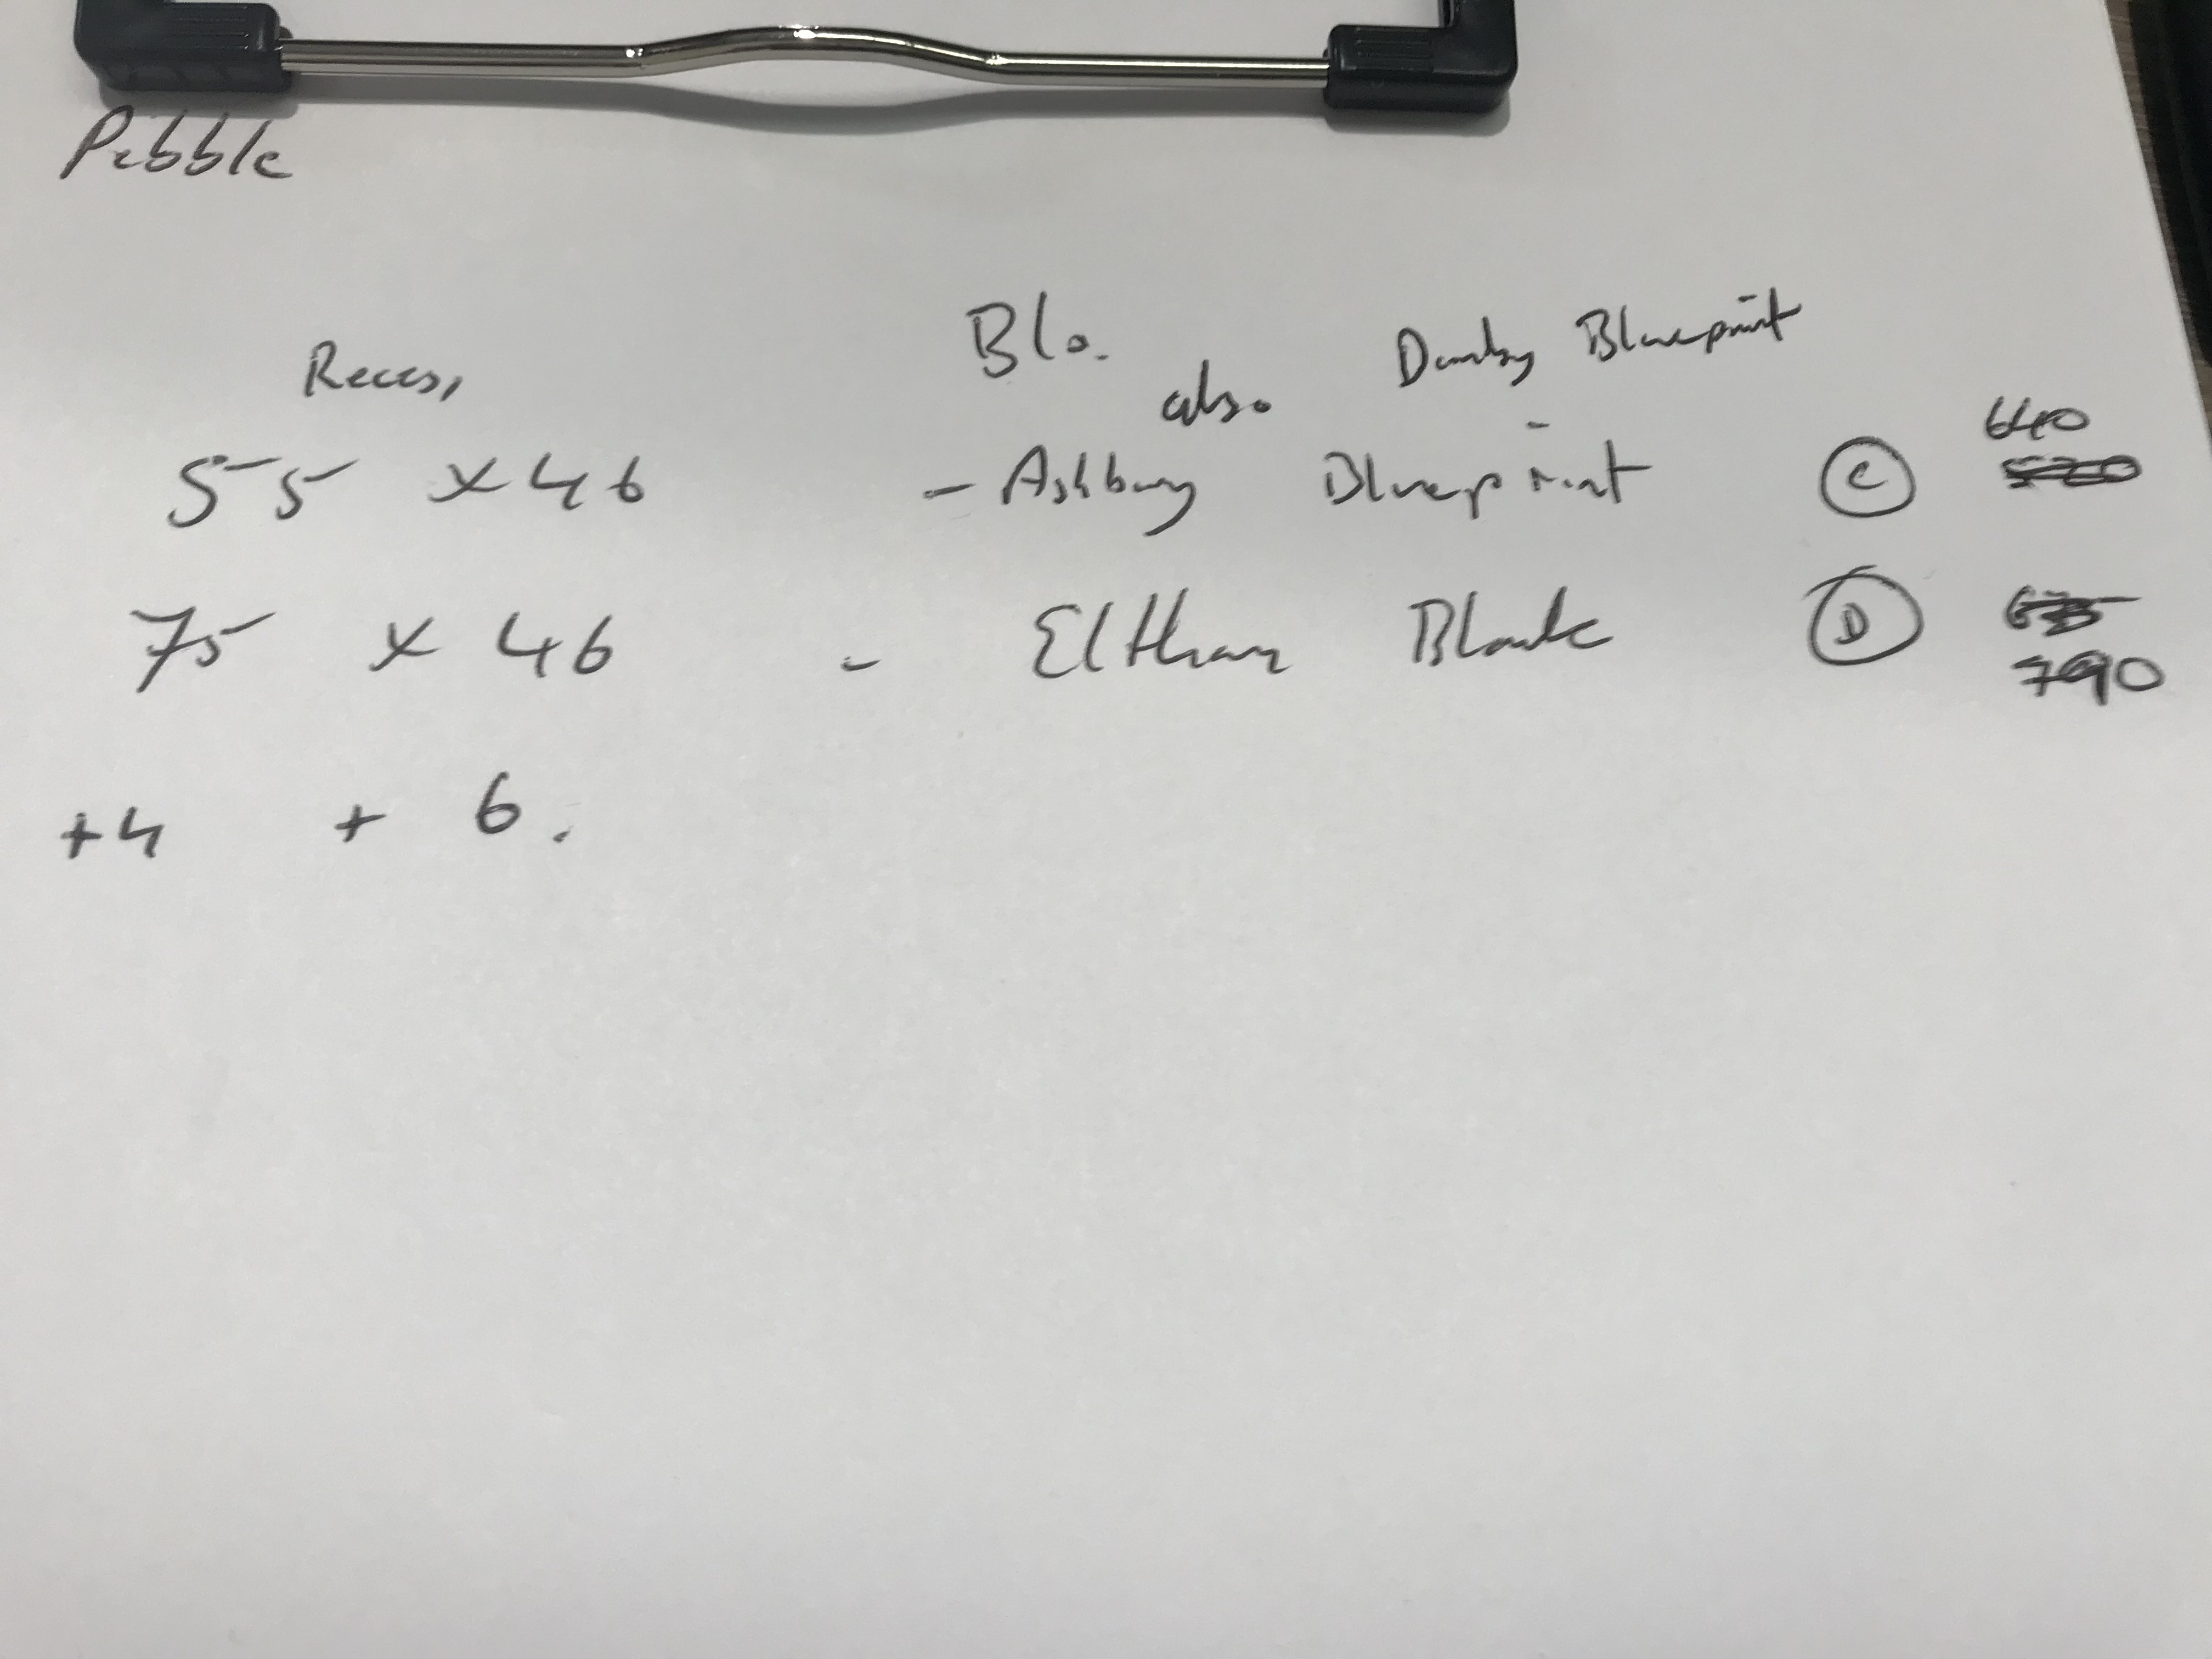 Pebble
Recess
Blo.
also Danby Blueprint
55 x 46 - Ashbury Blueprint C 640
520
75 x 46 - Eltham Black D
790
+4 + 6.